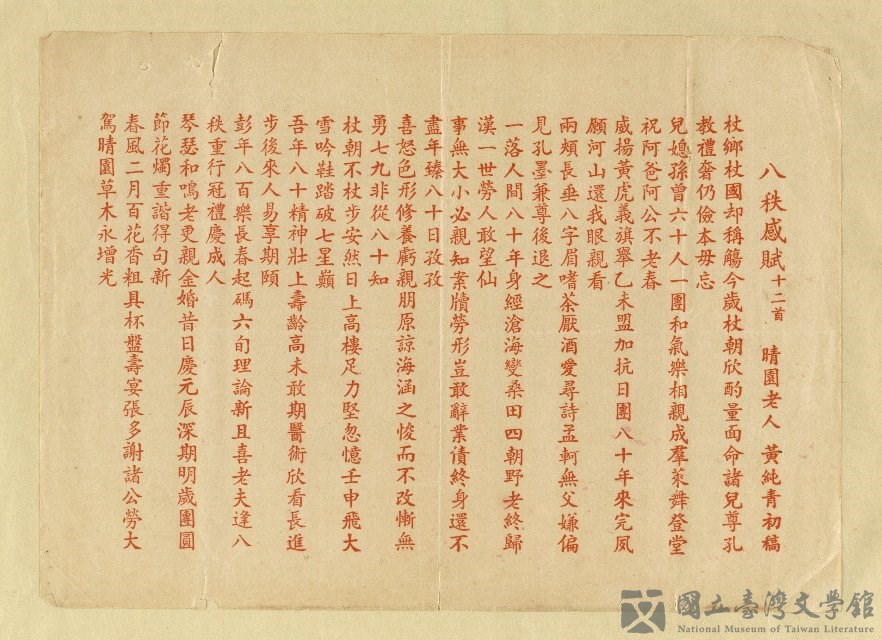 八秩感賦十二首 晴園老人 黃純青初稿
杖鄉杖國却稱觴今歲杖朝欣酌量面命諸兒尊孔
教禮奢仍儉本毋忘
兒媳孫曾六十人一團和氣樂相親成羣萊舞登堂
祝阿爸阿公不老春
威揚黃虎義旗舉乙未盟加抗日團八十年來完夙
願河山還我眼親看
兩頰長垂八字眉嗜茶厭酒愛尋詩孟軻無父嫌偏
見孔墨兼尊後退之
一落人間八十年身經滄海變桑田四朝野老終歸
漢一世勞人敢望仙
事無大小必親知案牘勞形豈敢辭業債終身還不
盡年臻八十日孜孜
喜怒色形修養虧親朋原諒海涵之悛而不改慚無
勇七九非從八十知
杖朝不杖步安然日上高樓足力堅忽憶壬申飛大
雪吟鞋踏破七星巔
吾年八十精神壯上壽齡高未敢期醫術欣看長進
步後來人易享期頤
彭年八百樂長春起碼六旬理論新且喜老夫逢八
秩重行冠禮慶成人
琴瑟和鳴老更親金婚昔日慶元辰深期明歲團圓
節花燭重諧得句新
春風二月百花香粗具杯盤壽宴張多謝諸公勞大
駕晴園草木永增光
國立臺灣文學館
National Museum of Taiwan Literature